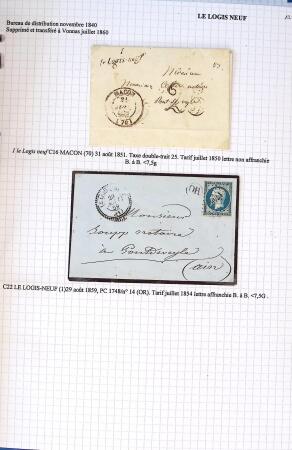 LE LOGIS NEUF
Bureau de distribution novembre 1840
Supprimé et transféré à Vonnas juillet 1860
1
le Logis-neuf
Monsieur
MACON
21
(70)
1 le Logis neuf C16 MACON (70) 31 août 1851. Taxe double-trait 25. Tarif juillet 1850 lettre non affranchie
B. à B. <7,5g
OR
Monsieur
Soupp notaire
à Pontdeveyle
(ain)
C22 LE LOGIS-NEUF (1)29 août 1859, PC 1748/n° 14 (OR). Tarif juillet 1854 lettre affranchie B. à B. <7,5G .